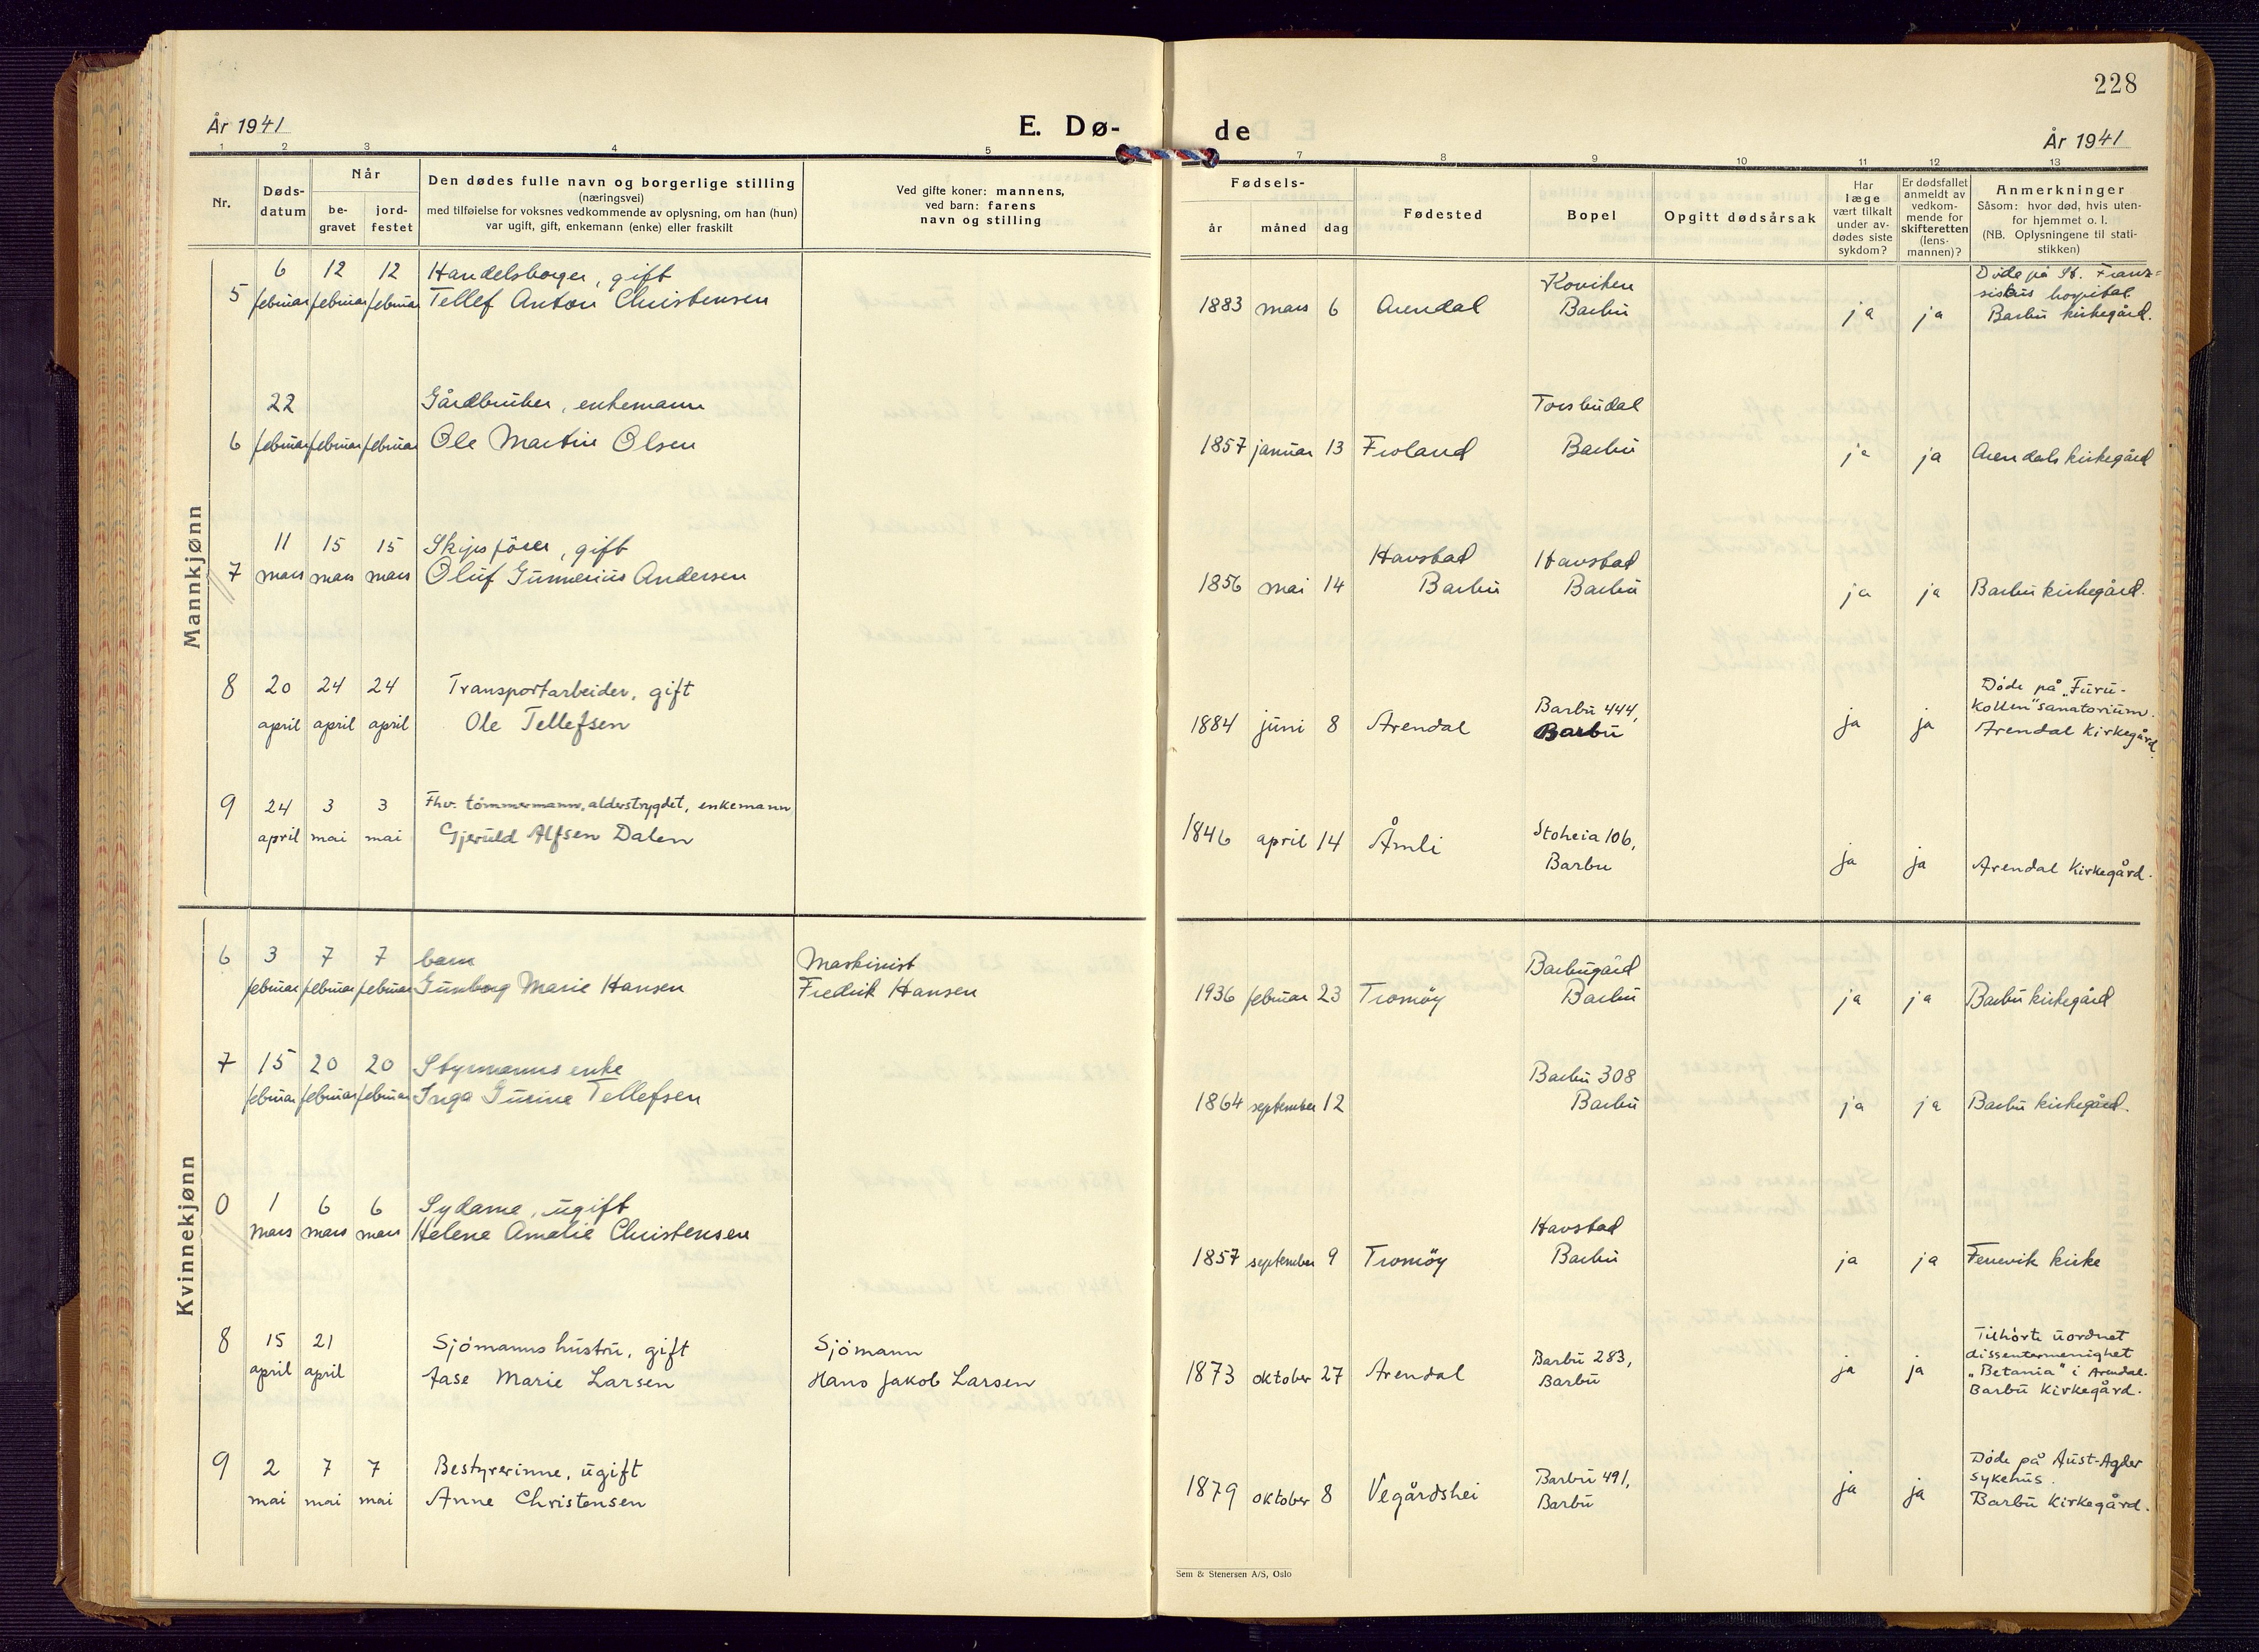 228
År 1941
E. Dø-
de
År 1941
1 2 3 4 5 7 8 9 10 11 12 13
Nr.
Døds-
datum
Når
be-
gravet
jord-
festet
Den dødes fulle navn og borgerlige stilling
(næringsvei)
med tilføielse for voksnes vedkommende av oplysning, om han (hun)
var ugift, gift, enkemann (enke) eller fraskilt
Ved gifte koner: mannens,
ved barn: farens
navn og stilling
Fødsels-
år måned dag
Fødested
Bopel
Opgitt dødsårsak
Har
læge
vært tilkalt
under av-
dødes siste
sykdom?
Er dødsfallet
anmeldt av
vedkom-
mende for
skifteretten
(lens-
mannen)?
Anmerkninger
Såsom: hvor død, hvis uten-
for hjemmet o. l.
(NB. Oplysningene til stati-
stikken)
Mannkjønn
6 12 12 Handelsborger, gift
5 februar februar februar Tellef Anton Christensen
Koviken
1883 mars 6 Arendal Barbu ja ja
Døde på St. Franz-
siskus hospital.
Barbu kirkegård.
22 Gårdbruker, enkemann
6 februar februar februar Ole Martin Olsen
Torsbudal
1857 januar 13 Froland Barbu ja ja Arendals kirkegård
11 15 15 Skipsfører, gift
7 mars mars mars Oluf Gunnerius Andersen
Havstad Havstad
1856 mai 14 Barbu Barbu ja ja Barbu kirkegård.
8 20 24 24 Transportarbeider, gift
april april april Ole Tellefsen
Barbu 444,
1884 juni 8 Arendal Barbu ja ja
Døde på "Furu-
kollen" sanatorium.
Arendal Kirkegård.
9 24 3 3 Fhv. tømmermann, alderstrygdet, enkemann
april mai mai Gjeruld Alfsen Dalen
1846 april 14 Åmli Stoheia 106,
Barbu ja ja Arendal Kirkegård.
Kvinnekjønn
6 3 7 7 barn Maskinist
februar februar februar Gunborg Marie Hansen Fredrik Hansen
Barbugård
1936 februar 23 Tromøy Barbu ja ja Barbu kirkegård
7 15 20 20 Styrmanns enke
februar februar februar Inga Gurine Tellefsen
Barbu 308
1864 september 12 Barbu ja ja Barbu kirkegård.
0 1 6 6 Sydame, ugift
mars mars mars Helene Amalie Christensen
Havstad
1857 september 9 Tromøy Barbu ja ja Fervik kirke
8 15 21 Sjømanns hustru, gift Sjømann
april april Aase Marie Larsen Hans Jakob Larsen
1873 oktober 27 Arendal Barbu 283,
Barbu ja ja
Tilhørte uordnet
dissentermenighet
"Betania" i Arendal.
Barbu Kirkegård.
9 2 7 7 Bestyrerinne, ugift
mai mai mai Anne Christensen
1879 oktober 8 Vegårdshei Barbu 491,
Barbu ja ja
Døde på Aust-Agder
sykehus.
Barbu Kirkegård.
Sem & Stenersen A/S, Oslo